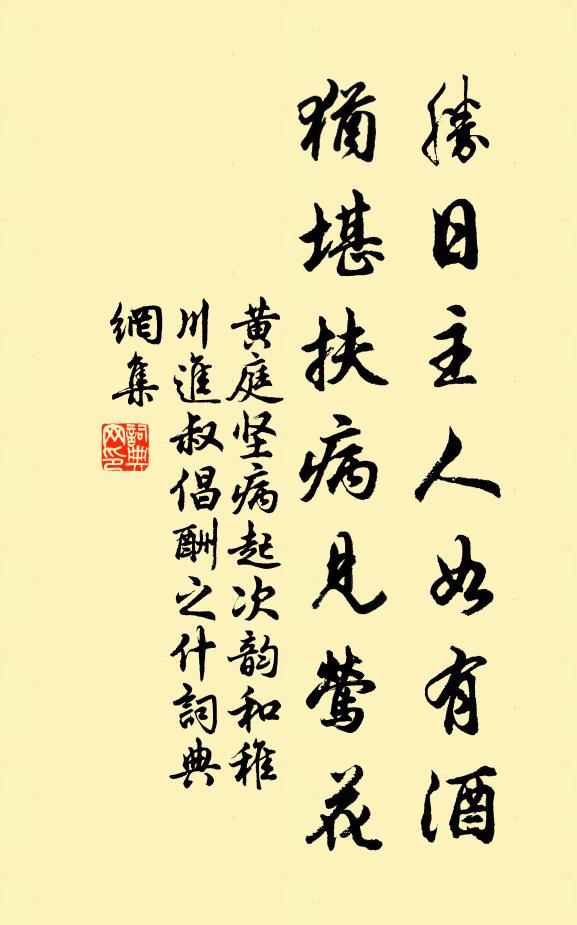 勝日主人如有酒
猶堪扶病見鶯花
黄庭坚病起次韵和稚
川進叔倡酬之什詞典
網集
詞典
网印